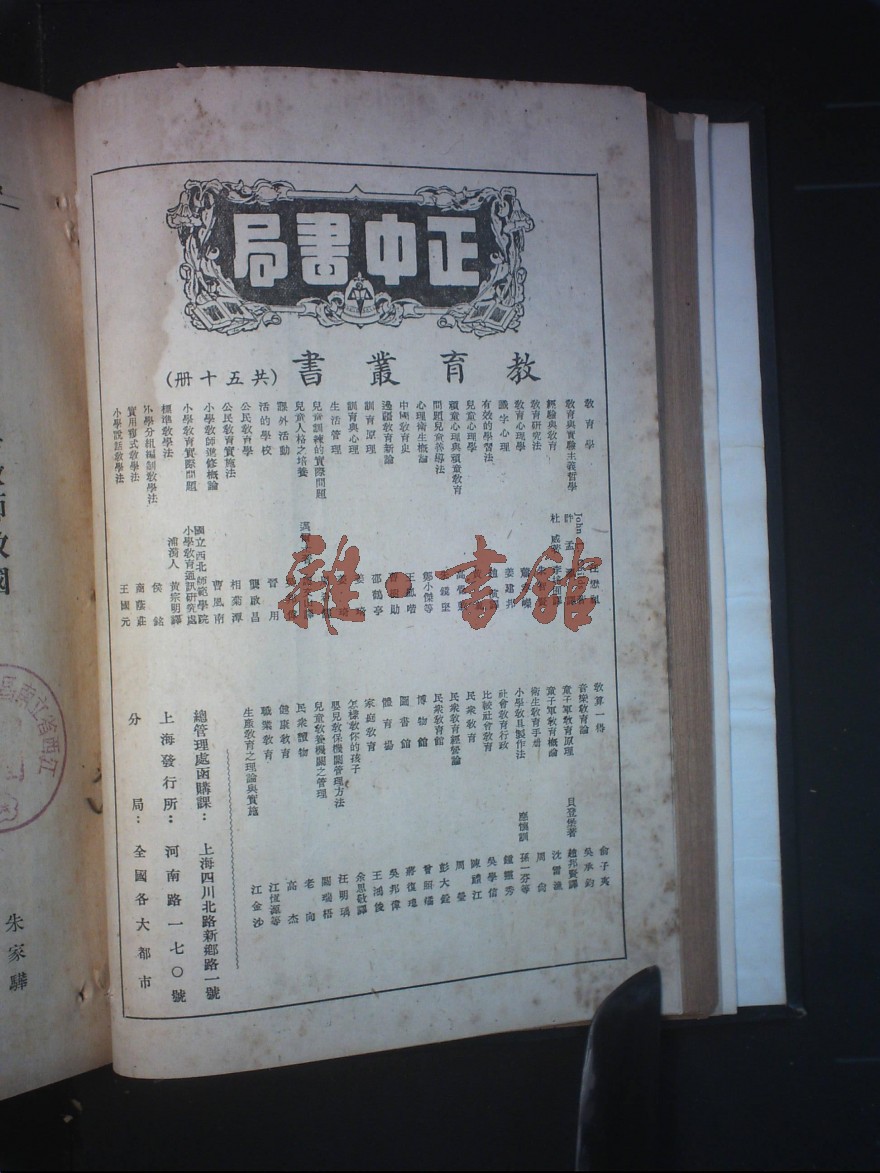 正中書局
教育叢書(共五十冊)
教育學
教育與實驗主義哲學
經驗與教育 杜威
教育研究法
教育心理學
識字心理 姜建邦
有效的學習法
兒童心理學
頑童心理與頑童教育
問題兒童善導法
心理衛生概論 鄭小傑等
中國教育史 王鳳喈
邊疆教育新論
訓育原理 邵鶴亭
訓育與心理
生活管理
兒童訓練的實際問題
兒童人格之培養
課外活動
活的學校
公民教育學 龔啟昌
公民教育實施法 相菊潭
小學教師進修概論 曹風南
小學教育實際問題 國立西北師範學院小學教育通訊研究處
標準教學法 浦漪人 黃宗明譯
小學分組編制教學法 侯銘
實用複式教學法 商蔭莊
小學說話教學法 王國元
教算一得 俞子夷
音樂教育論 吳承鈞
童子軍教育原理 貝登堡著 趙邦賢譯
童子軍教育概論 沈雷漁
衛生教育手冊 周尚
小學教具製作法 應慎訓 孫一芬等
社會教育行政 鍾靈秀
比較社會教育 吳學信
民衆教育 陳禮江
民衆教育館 周
民衆教育經營論 彭大銓
博物館 曾昭燏
圖書館 蔣復璁
體育場 吳邦偉
家庭教育 王鴻俊
怎樣教你的孩子 余思敬譯
嬰兒教保機關管理方法 汪明瑀
兒童教養機關之管理 關瑞梧
民衆禮物 老向
健康教育 高杰
職業教育 江恆源等
生產教育之理論與實施 江金沙
總管理處函購課：上海四川北路新鄉路一號
上海發行所：河南路一七〇號
分局：全國各大都市
雜·書館
朱家驊